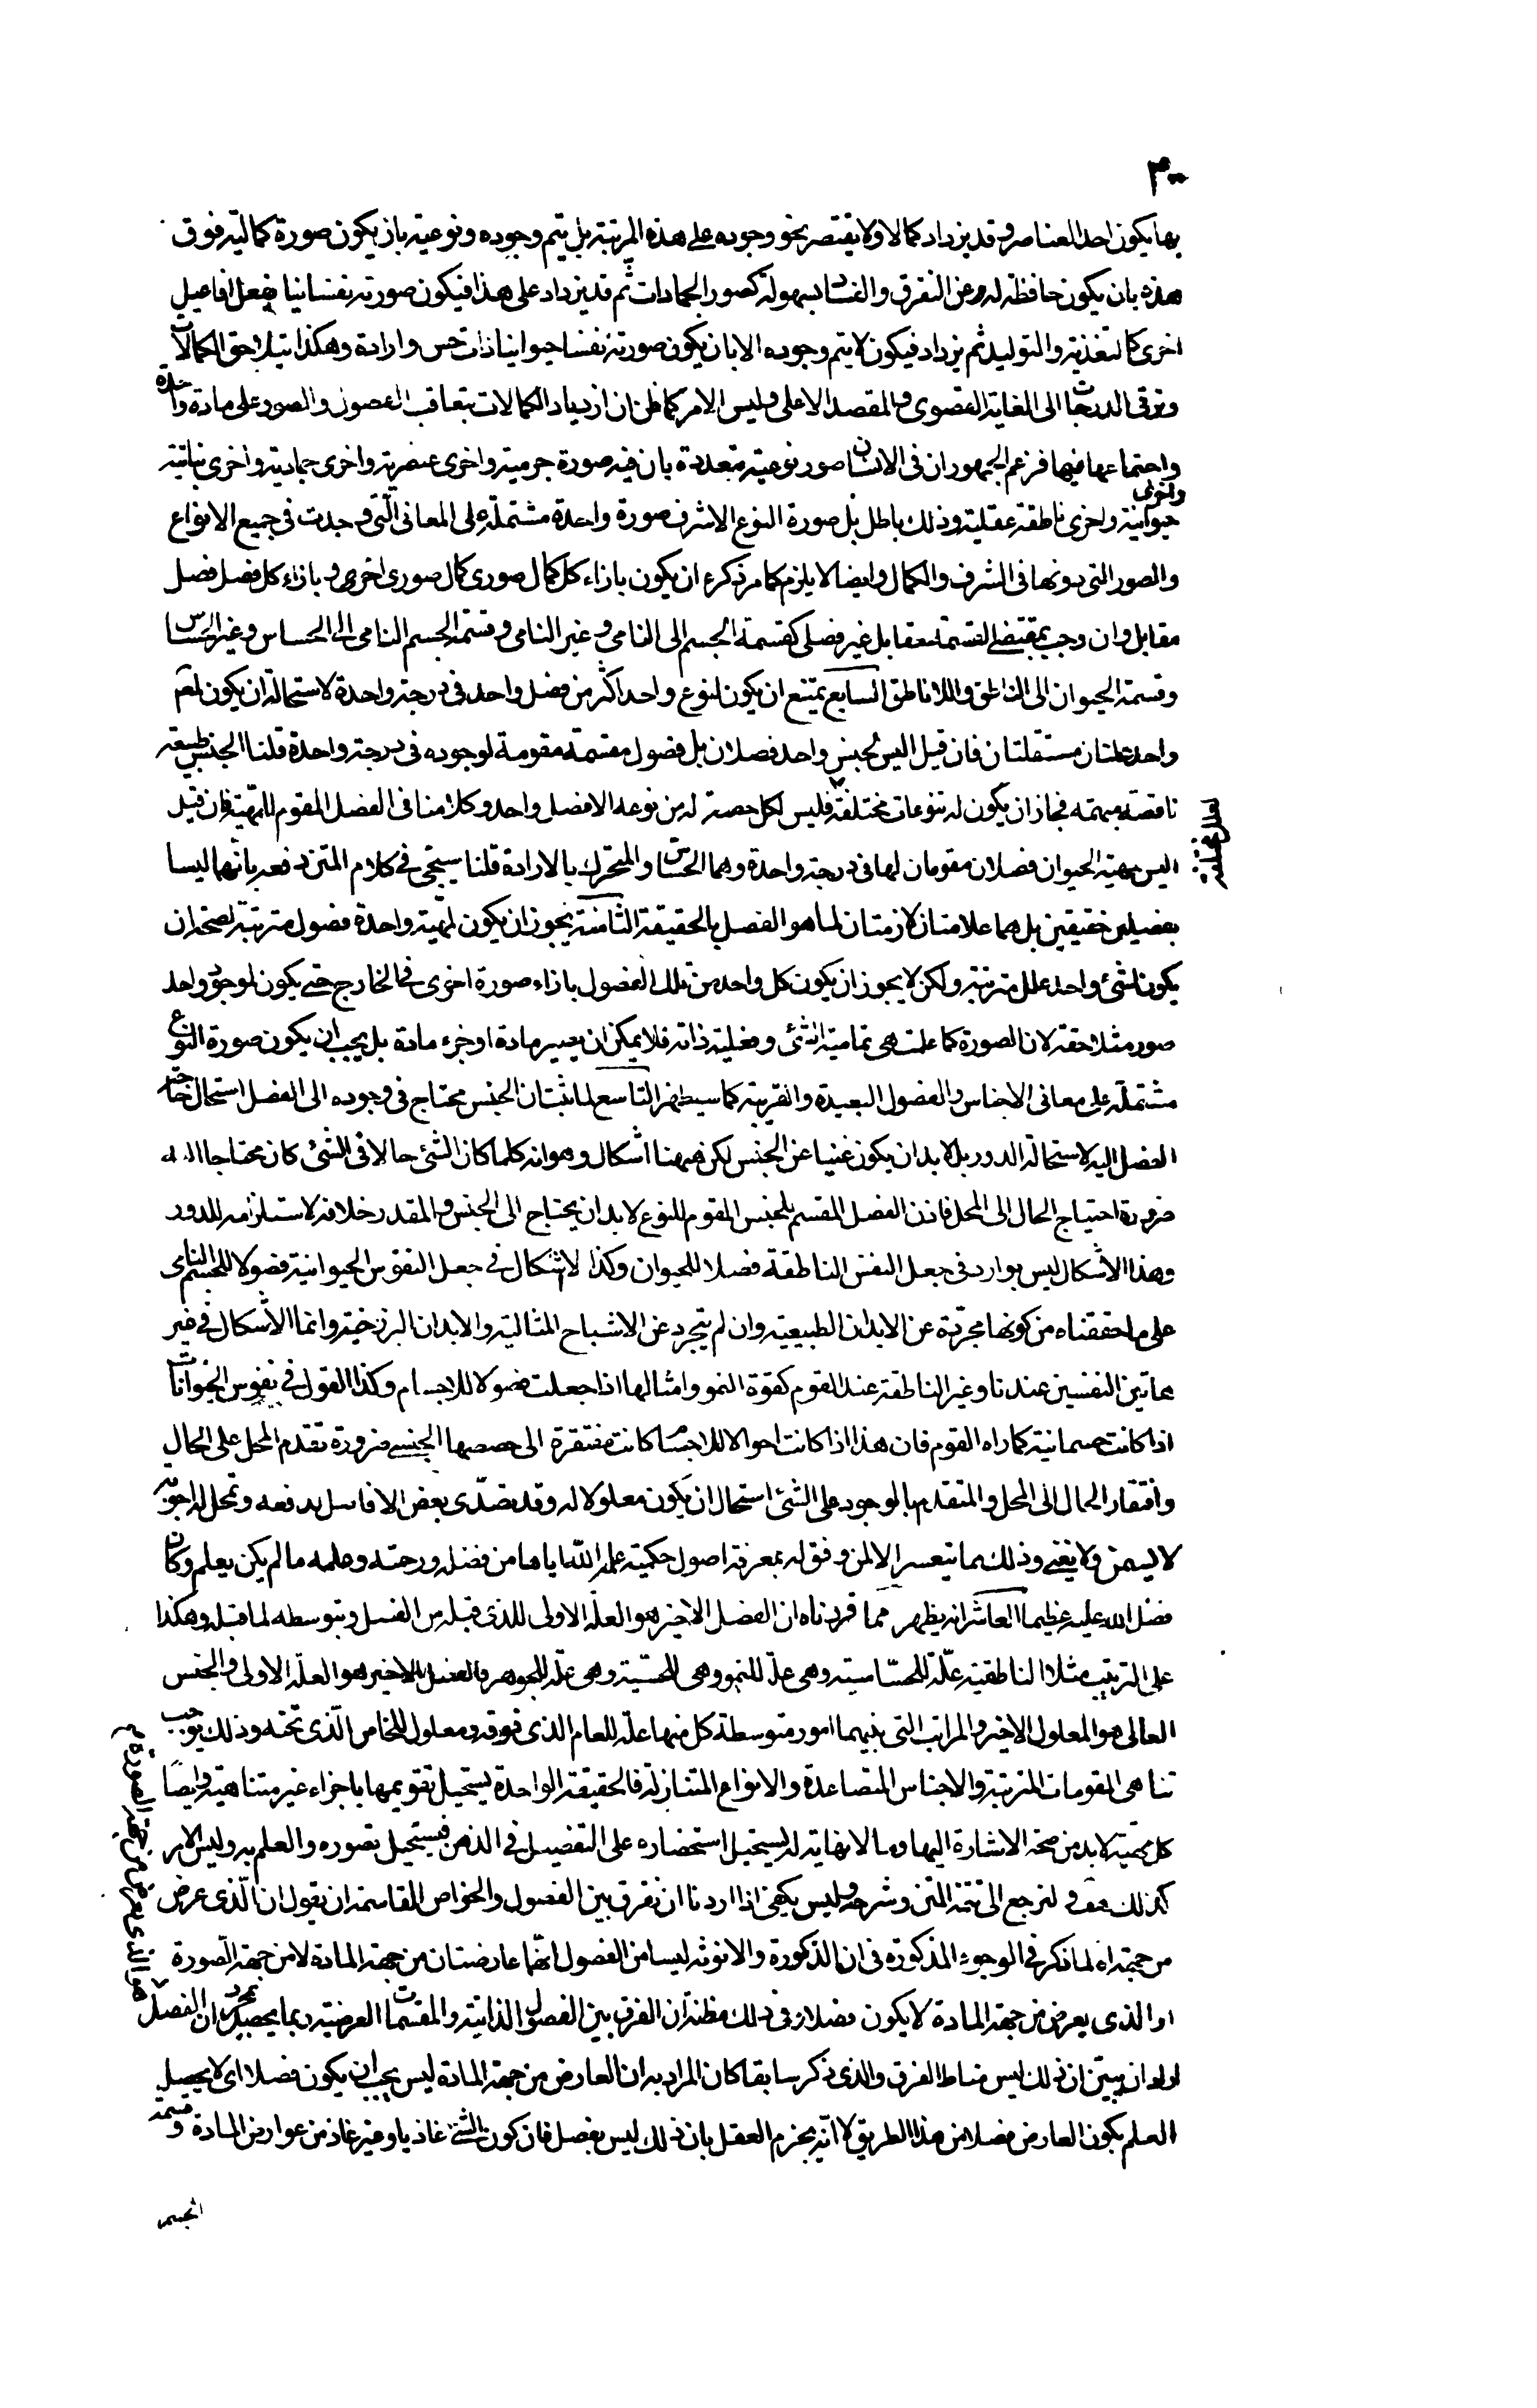 ٣٠٠
بها يكون احد العناصر وقد يزداد كمالا ولا يقتصر نحو وجوده على هذه المرتبة بل يتم وجوده ونوعيته بان يكون صورة كمالية فوق
هذه بان يكون حافظة له عن التفرق والفساد بسهولة كصور الجمادات ثم قد يزداد على هذا فيكون صورته نفسا نباتيا يفعل افاعيل
اخرى كالتغذية والتوليد ثم يزداد فيكون لا يتم وجوده الا بان يكون صورته نفسا حيوانيا ذات حس وارادة وهكذا يتلاحق الكمالات
وترقى الدرجات الى الغاية القصوى والمقصد الاعلى وليس الامر كما ظن ان ازدياد الكمالات بتعاقب الفصول والصور على مادة واحدة
واجتماعها فيها فزعم الجمهور ان فى الانسان صور نوعية متعددة بان فيه صورة جرمية واخرى عنصرية واخرى جمادية واخرى نباتية
واخرى
حيوانية واخرى ناطقة عقلية وذلك باطل بل صورة النوع الاشرف صورة واحدة مشتملة على المعانى التى وجدت فى جميع الانواع
والصور التى دونها فى الشرف والكمال وايضا لا يلزم كما مر ذكره ان يكون بازاء كل كمال صورى كمال صورى اخرى وبازاء كل فصل فصل
مقابل وان وجب بمقتضى القسمة مقابل غير فصلى كقسمة الجسم الى النامى وغير النامى وقسمة الجسم النامى الى الحساس وغير الحساس
وقسمة الحيوان الى الناطق واللا ناطق السابع يمتنع ان يكون لنوع واحد اكثر من فصل واحد فى درجة واحدة لاستحالة ان يكون لمعـ
واحد علتان مستقلتان فان قيل اليس لجنس واحد فصلان بل فصول مقسمة مقومة لوجوده فى درجة واحدة قلنا الجنس طبيعة
ناقصة مبهمة فجاز ان يكون له تنوعات مختلفة فليس لكل حصة له من نوعه الا فصل واحد وكلامنا فى الفصل المقوم للمهية فان قيل
اليس مهية الحيوان فصلان مقومان لها فى درجة واحدة وهما الحساس والمتحرك بالارادة قلنا سيجئ فى كلام المتن دفعه بانهما ليسا
بفصلين حقيقين بل هما علامتان لازمتان لما هو الفصل بالحقيقة الثامنة يجوز ان يكون لمهية واحدة فصول مترتبة لصحة ان
يكون لشئ واحد علل مترتبة ولكن لا يجوز ان يكون كل واحد من تلك الفصول بازاء صورة اخرى فى الخارج حتى يكون لموجود واحد
صور متلاحقة لان الصورة كما علمت هى تمامية الشئ وفعلية ذاته فلا يمكن ان يصير مادة او جزء مادة بل يجب ان يكون صورة النوع
مشتملة على معانى الاجناس والفصول البعيدة والقريبة كما سيظهر التاسع لما ثبت ان الجنس محتاج فى وجوده الى الفصل استحال حاجة
الفصل اليه لاستحالة الدور بل لا بد ان يكون غنيا عن الجنس لكن ههنا اشكال وهو انه كلما كان الشئ حالا فى الشئ كان محتاجا اليه
ضرورة احتياج الحال الى المحل فاذن الفصل المقسم للجنس المقوم للنوع لا بد ان يحتاج الى الجنس والمقدر خلافه لاستلزامه للدور
وهذا الاشكال ليس بوارد فى جعل النفس الناطقة فصلا للحيوان وكذا لا اشكال فى جعل النفوس الحيوانية فصولا للجسم النامى
على ما حققناه من كونها مجردة عن الابدان الطبيعية وان لم يتجرد عن الاشباح المثالية والابدان البرزخية وانما الاشكال فى غير
هاتين النفسين عندنا وغير الناطقة عند القوم كقوة النمو وامثالها اذا جعلت فصولا للاجسام وكذا القول فى نفوس الحيوانات
اذا كانت جسمانية كما راه القوم فان هذا اذا كانت احوالا للاجسام كانت مفتقرة الى حصصها الجنسى ضرورة تقدم المحل على الحال
وافتقار الحال الى المحل والمتقدم بالوجود على الشئ استحال ان يكون معلولا له وقد تصدى بعض الافاضل بدفعه وتمحل له اجوبة
لا يسمن ولا يغنى وذلك مما يتعسر الا لمن وفق له بمعرفة اصول حكمية علمه الله اياها من فضله ورحمته وعلمه ما لم يكن يعلم وكان
فضل الله عليه عظيما العاشر انه يظهر مما قررناه ان الفصل الاخير هو العلة الاولى للذى قبله من الفصل وبتوسطه لما قبله وهكذا
على الترتيب مثلا الناطقية علة للحساسية وهى علة للنمو وهى للجسمية وهى علة للجوهر فالفصل الاخير هو العلة الاولى والجنس
العالى هو المعلول الاخير والمراتب التى بينهما امور متوسطة كل منها علة للعام الذى فوقه ومعلول للخاص الذى تحته وذلك يوجب
تناهى المقومات المترتبة والاجناس المتصاعدة والانواع المتنازلة فالحقيقة الواحدة يستحيل تقويمها باجزاء غير متناهية وايضا
كل مهية لا بد من صحة الاشارة اليها وما لا نهاية له يستحيل استحضاره على التفصيل فى الذهن فيستحيل تصوره والعلم به وليس الامر
كذلك فقف ولنرجع الى تتمة المتن وشرحه وليس يكفى اذا اردنا ان نفرق بين الفصول والخواص القاسمة ان نقول ان الذى عرض
من جهة اه لما ذكر فى الوجوه المذكورة فى ان الذكورة والانوثة ليسا من الفصول انهما عارضتان من جهة المادة لا من جهة الصورة
او الذى يعرض من جهة المادة لا يكون فصلا وفى ذلك مظنة ان الفرق بين الفصول الذاتية والمقسمات العرضية ربما يحصل بمجرد ان الفصل
هو الذى يعرض من جهة الصورة
اراد ان يبين ان ذلك ليس مناط الفرق والذى ذكر سابقا كان المراد به ان العارض من جهة المادة ليس يجب ان يكون فصلا اى لا يحصل
العلم بكون العارض فصلا من هذا الطريق لا انه يجزم العقل بان ذلك ليس بفصل فان كون الشئ غاذيا وغير غاذ من عوارض المادة وقسمة
الجسم